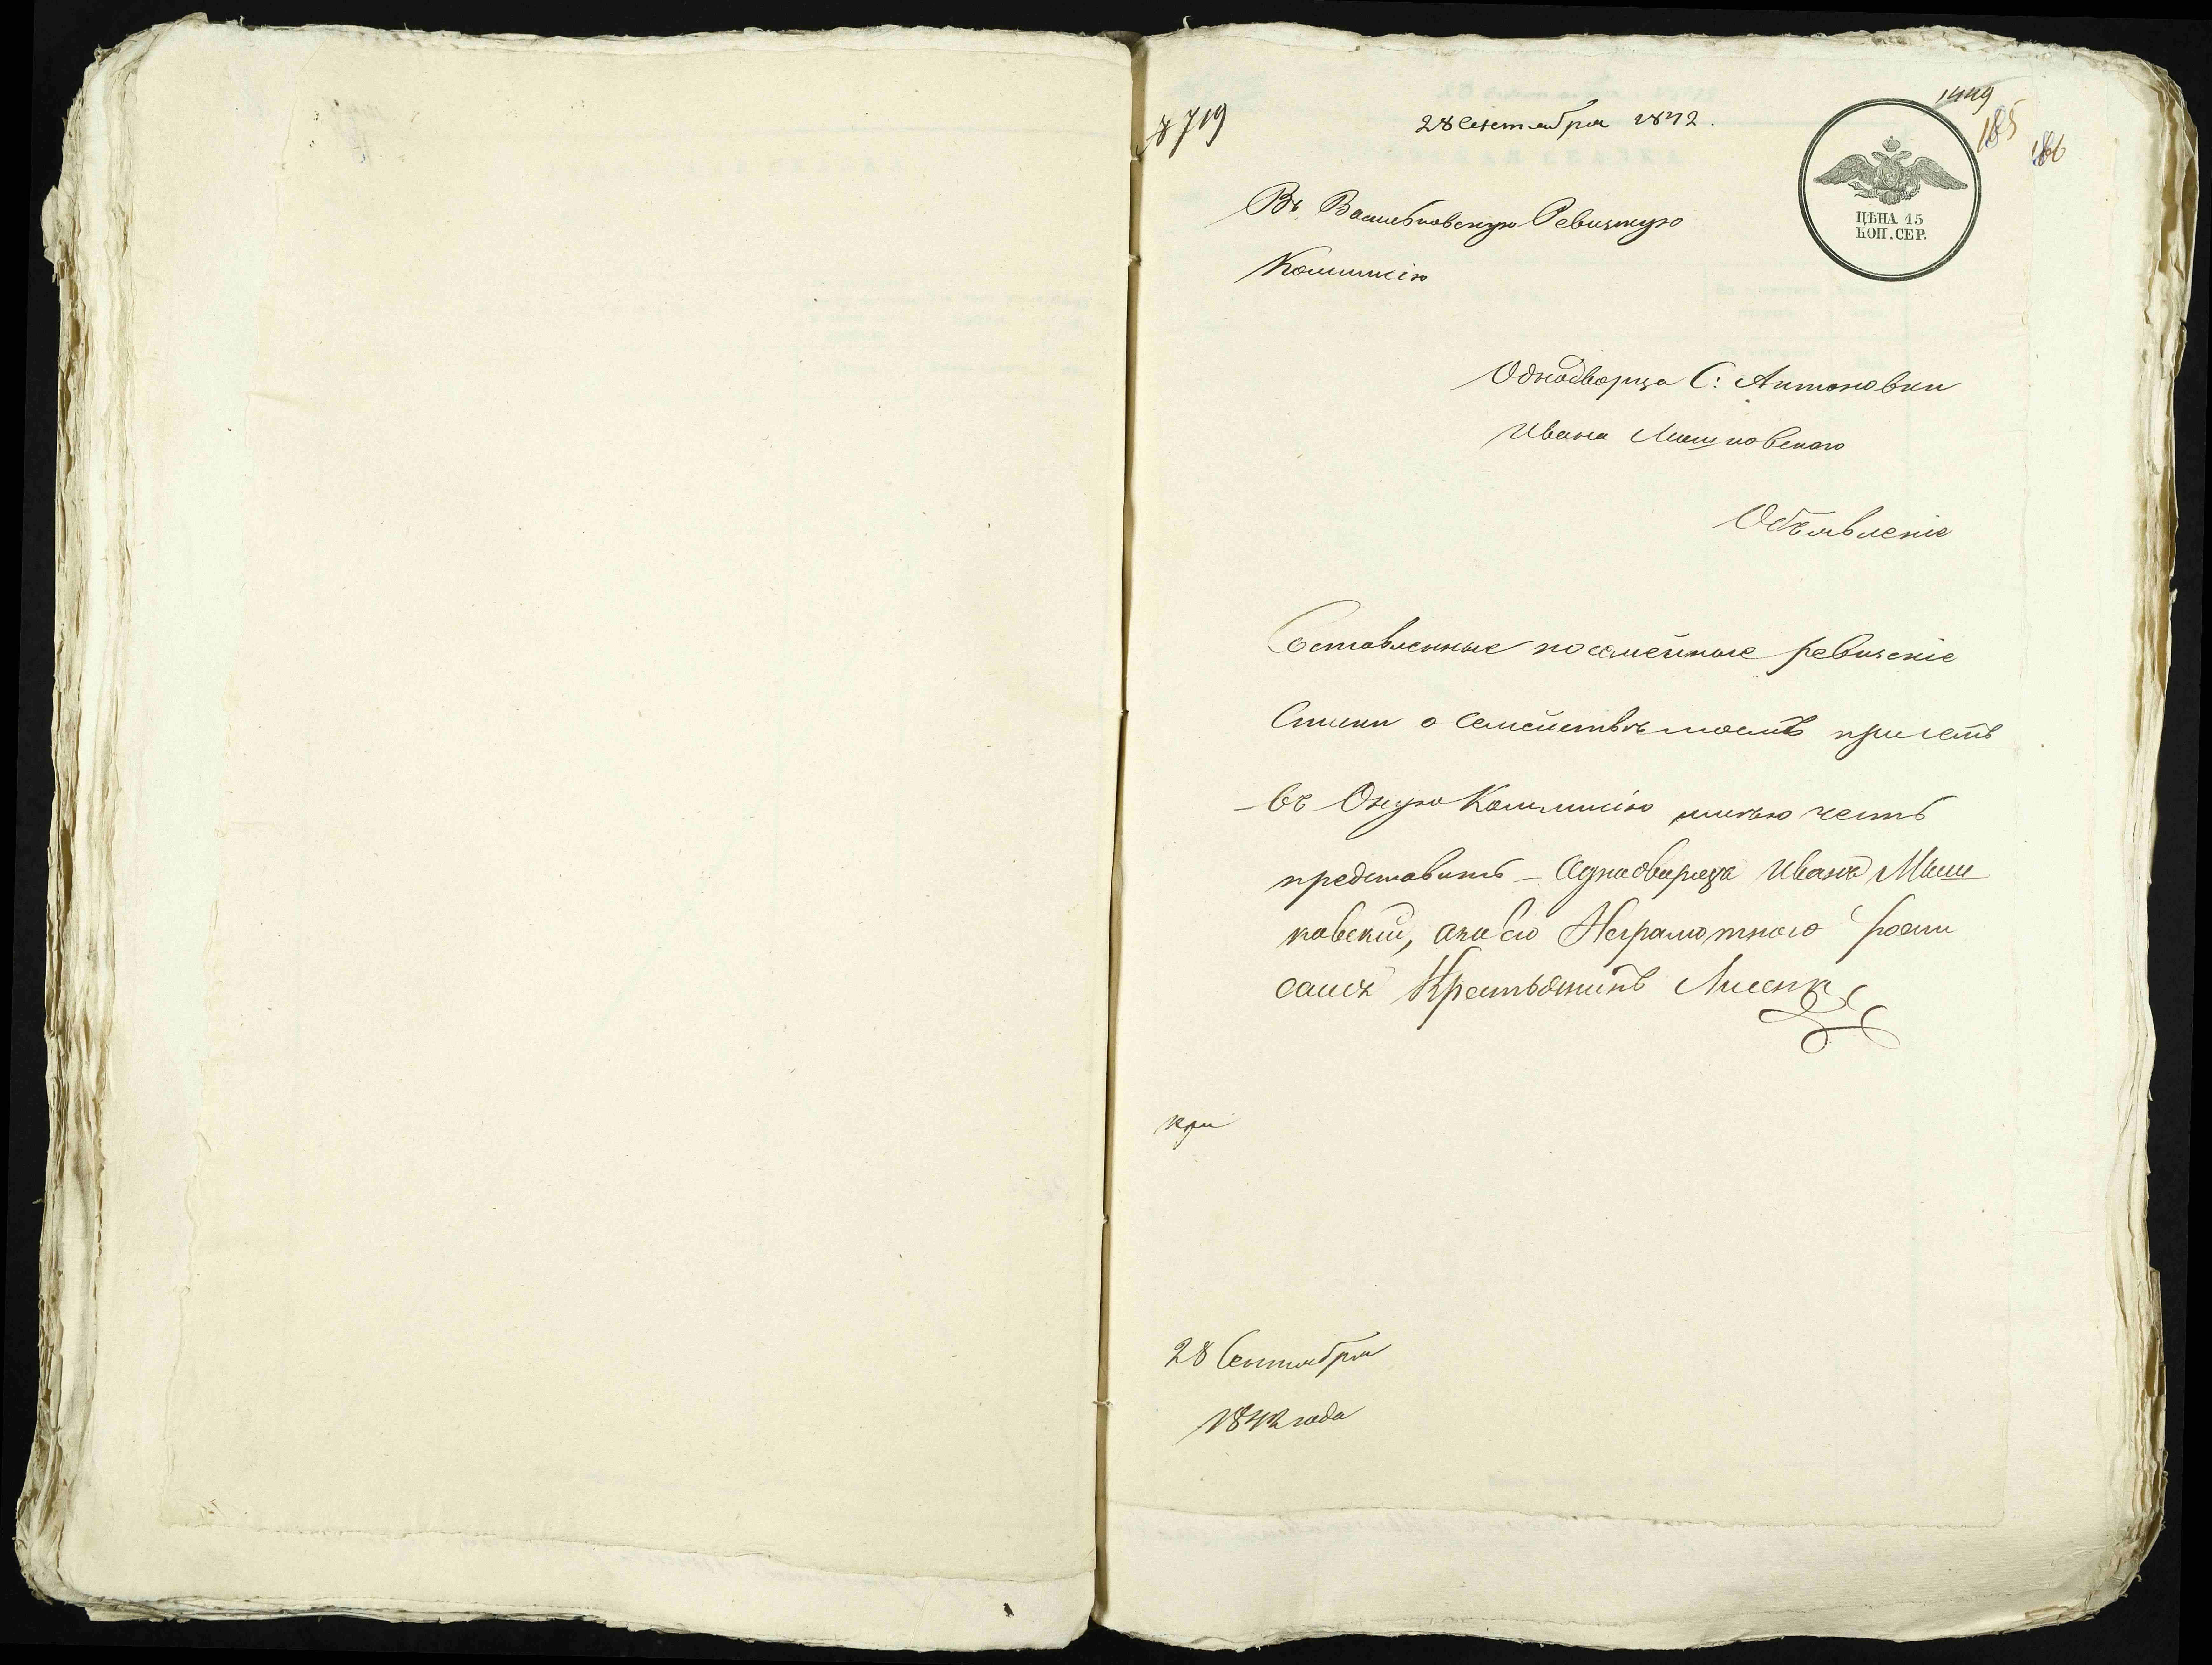 719
28 Сентября 1842.
1449
185
186
ЦѢНА 15
КОП. СЕР.
Въ Васильковскую Ревизкую
Коммисію
Однодворца С: Антоновки
Ивана Машковскаго
Объявленіе
Составленные посемейные ревизскіе
Списки о Семействѣ моемъ при семъ
въ Оную Коммисію имѣю честь
представить – Однодворецъ Иванъ Маш
ковский, а за его Неграмотного роспи
сался Крестьянинъ
28 Сентября
1842 года